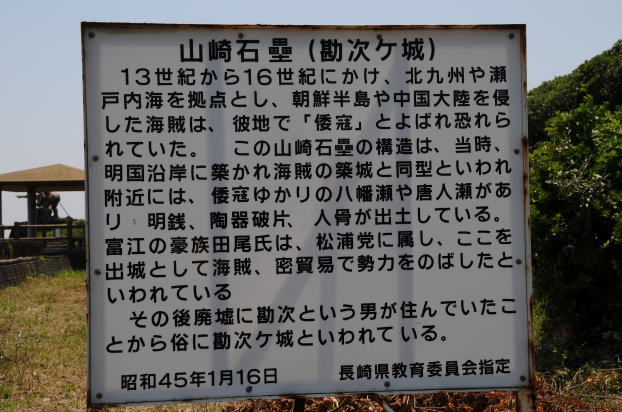 山崎石壘(勘次ケ城)
13世紀から16世紀にかけ、北九州や瀬
戸内海を拠点とし、朝鮮半島や中国大陸を侵
した海賊は、彼地で「倭寇」とよばれ恐れら
れていた。 この山崎石壘の構造は、当時、
明国沿岸に築かれ海賊の築城と同型といわれ
附近には、倭寇ゆかりの八幡瀬や唐人瀬があ
り 明銭、陶器破片、人骨が出土している。
富江の豪族田尾氏は、松浦党に属し、ここを
出城として海賊、密貿易で勢力をのばしたと
いわれている
その後廃墟に勘次という男が住んでいたこ
とから俗に勘次ケ城といわれている。
昭和45年1月16日 長崎県教育委員会指定